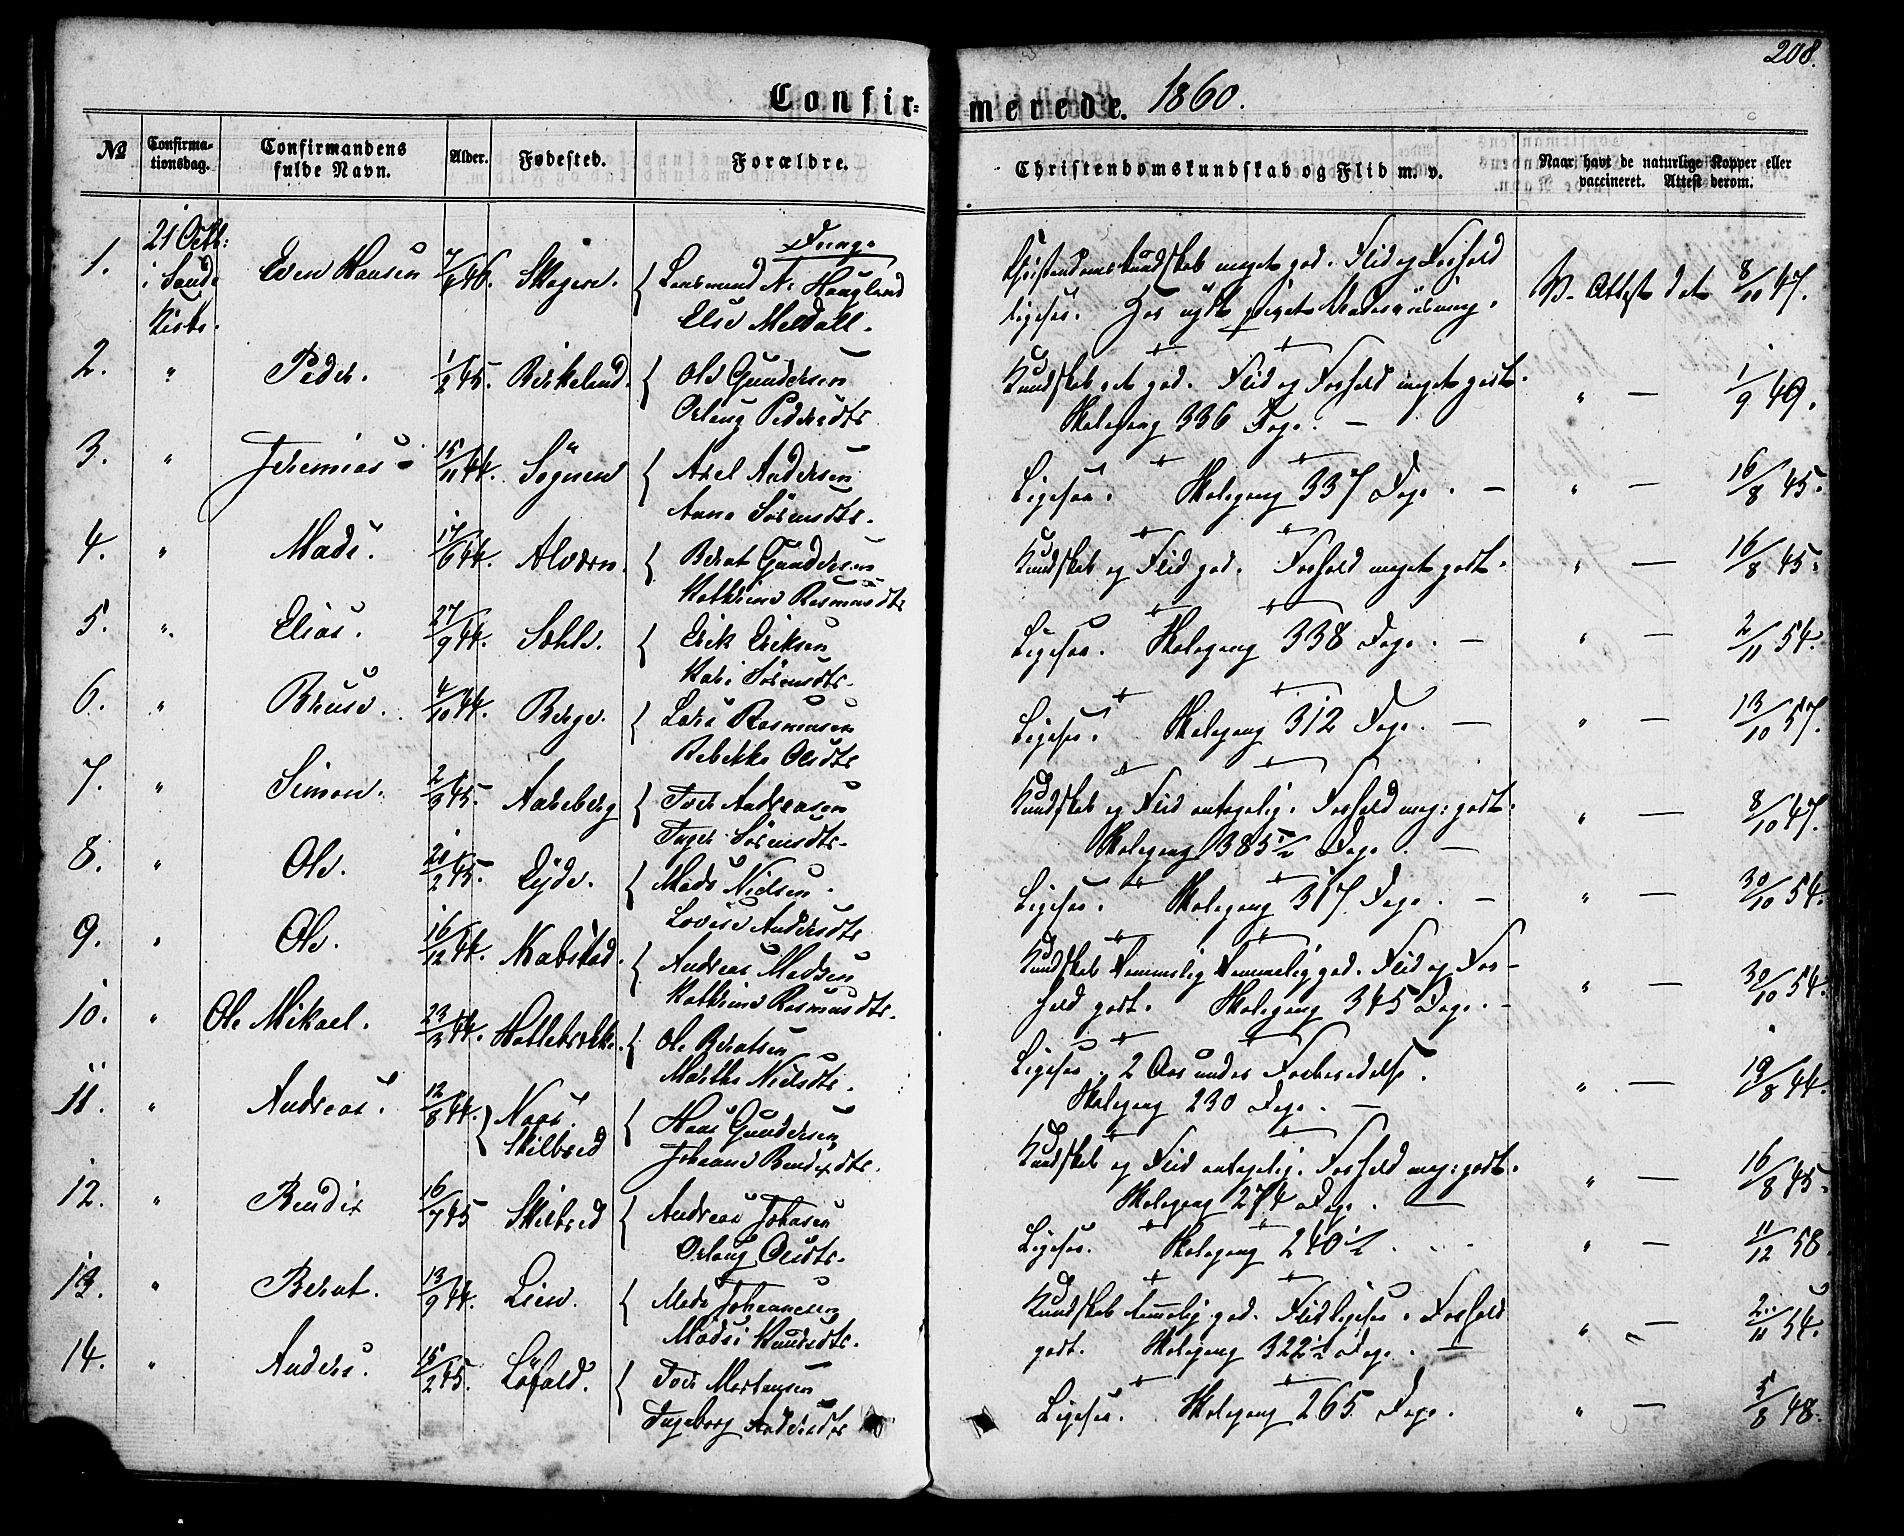 208.
Confirmerede. 1860.
No
Confirmationsdag.
Confirmandens fulde Navn.
Alder.
Fødested.
Forældre.
Christendomskundskab og Flid m. v.
Naar havt de naturlige Kopper eller vaccineret. Attest derom.
Drenge
1. 21 Octb: i Sande Kirke. Even Hansen 7/6 46. Skogen. { N. Haugland
Else Meldall.
Christendomskundskab meget god. Flid og Forhold
ligesaa.
V. Attest d. 8/10 47.
2. " Peder. 1/2 45. Birkeland. { Ole Gundersen
Orlaug Pedersdtr
Kundskab god. Flid og Forhold meget godt.
Skolegang 336 Dage. —
" — 1/9 49.
3. " Jeremias 15/11 44. Sögnen { Axel Andersen
Anne Sörensdtr.
Ligesaa. Skolegang 337 Dage. —
" — 16/8 45.
4. " Mads. 17/6 44. Alværn. { Berent Gundersen
Kathrine Rasmusdtr
Kundskab og Flid god. Forhold meget godt.
" — 16/8 45.
5. " Elias. 27/9 44. { Erik Eriksen
Kari Sörensdtr.
Ligesaa. Skolegang 338 Dage. —
" — 2/11 54.
6. " Bruse. 4/10 44. Berge. { Lars Rasmusen
Rebekka Olsdtr
Ligesaa. Skolegang 312 Dage. —
" — 13/10 57.
7. " Simon. 2/3 45. Aareberg { Tore Andreasen
Inger Sörensdtr.
Kundskab og Flid antagelig. Forhold meg: godt.
Skolegang 385 1/2 Dage. —
" — 8/10 47.
8. " Ole. 21/2 45. { Mads Nielsen.
Lovise Andersdtr
Ligesaa. Skolegang 317 Dage. —
" — 30/10 54.
9. " Ole. 16/12 44. { Andreas Madsen
Kathrine Rasmusdtr.
Kundskab temmelig god. Flid og For-
hold godt. Skolegang 345 Dage. —
" — 30/10 54.
10. " Ole Mikael. 23/3 44. { Ole Berntsen
Marthe Nielsdtr.
Ligesaa. 2 Aar under Forberedelse.
Skolegang 230 Dage. —
" — 19/8 44.
11. " Andreas. 12/8 44. { Naas. Skilbred { Hans Gundersen
Johanne Bendixdtr.
Kundskab og Flid antagelig. Forhold meg: godt.
Skolegang 274 Dage. —
" — 16/8 45.
12. " Bendix 16/7 45 Skilbred { Andreas Johnsen
Orlaug Olsdtr.
Ligesaa. Skolegang 240 1/2
" — 11/12 58.
13. " Berent. 13/9 44. Lien. { Mads Johannesen
Knudsdtr.
Kundskab temmelig god. Flid ligesaa. Forhold
godt. Skolegang 322 1/2 Dage. —
" — 2/11 54.
14. " Anders. 15/2 45. Löfald. { Tore Mortensen
Ingeborg Andersdtr
Ligesaa. Skolegang 265 Dage.
" — 5/8 48.